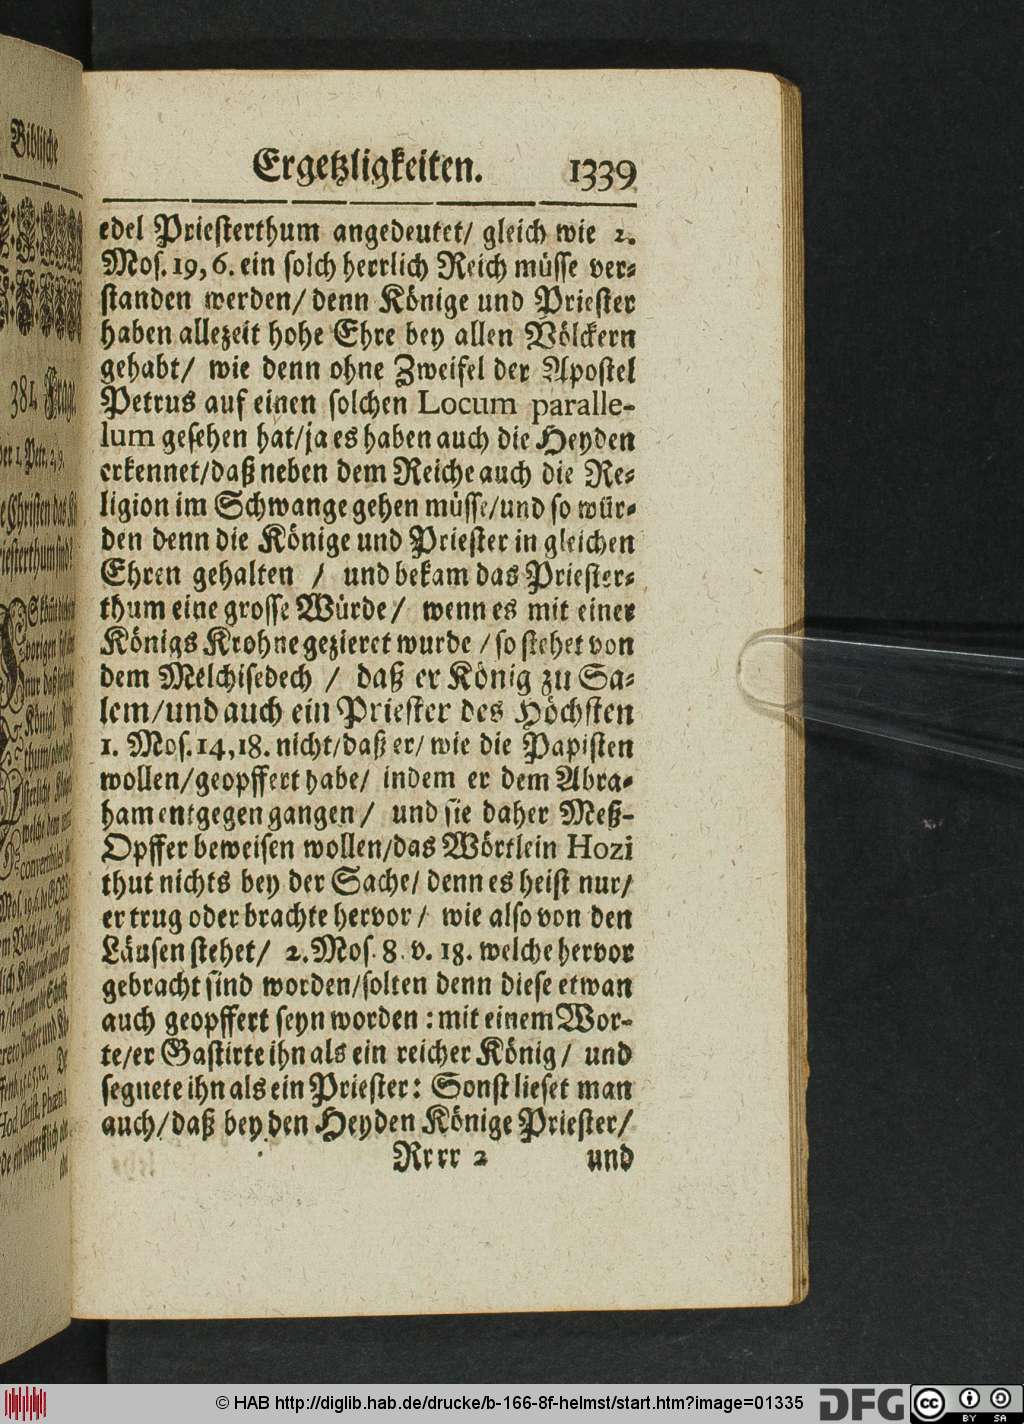 Biblische
Ergetzligkeiten. 1339
edel Priesterthum angedeutet/ gleich wie 2.
Mos. 19, 6. ein solch herrlich Reich müsse ver⸗
standen werden/ denn Könige und Priester
haben allezeit hohe Ehre bey allen Völckern
gehabt/ wie denn ohne Zweifel der Apostel
Petrus auf einen solchen Locum paralle-
lum gesehen hat/ ja es haben auch die Heyden
erkennet/ daß neben dem Reiche auch die Re⸗
ligion im Schwange gehen müsse/ und so wür⸗
den denn die Könige und Priester in gleichen
Ehren gehalten / und bekam das Priester⸗
thum eine grosse Würde/ wenn es mit einer
Königs Krohne gezieret wurde / so stehet von
dem Melchisedech / daß er König zu Sa⸗
lem/ und auch ein Priester des Höchsten
1. Mos. 14, 18. nicht/ daß er/ wie die Papisten
wollen/ geopffert habe/ indem er dem Abra⸗
ham entgegen gangen/ und sie daher Meß-
Opffer beweisen wollen/ das Wörtlein Hozi
thut nichts bey der Sache/ denn es heist nur/
er trug oder brachte hervor/ wie also von den
Läusen stehet/ 2. Mos. 8. v. 18. welche hervor
gebracht sind worden/ solten denn diese etwan
auch geopffert seyn worden: mit einem Wor-
te/ er Gastirte ihn als ein reicher König/ und
segnete ihn als ein Priester: Sonst lieset man
auch/ daß bey den Heyden Könige Priester/
Rrrr 2 und
© HAB http://diglib.hab.de/drucke/b-166-8f-helmst/start.htm?image=01335 DFG cc BY SA